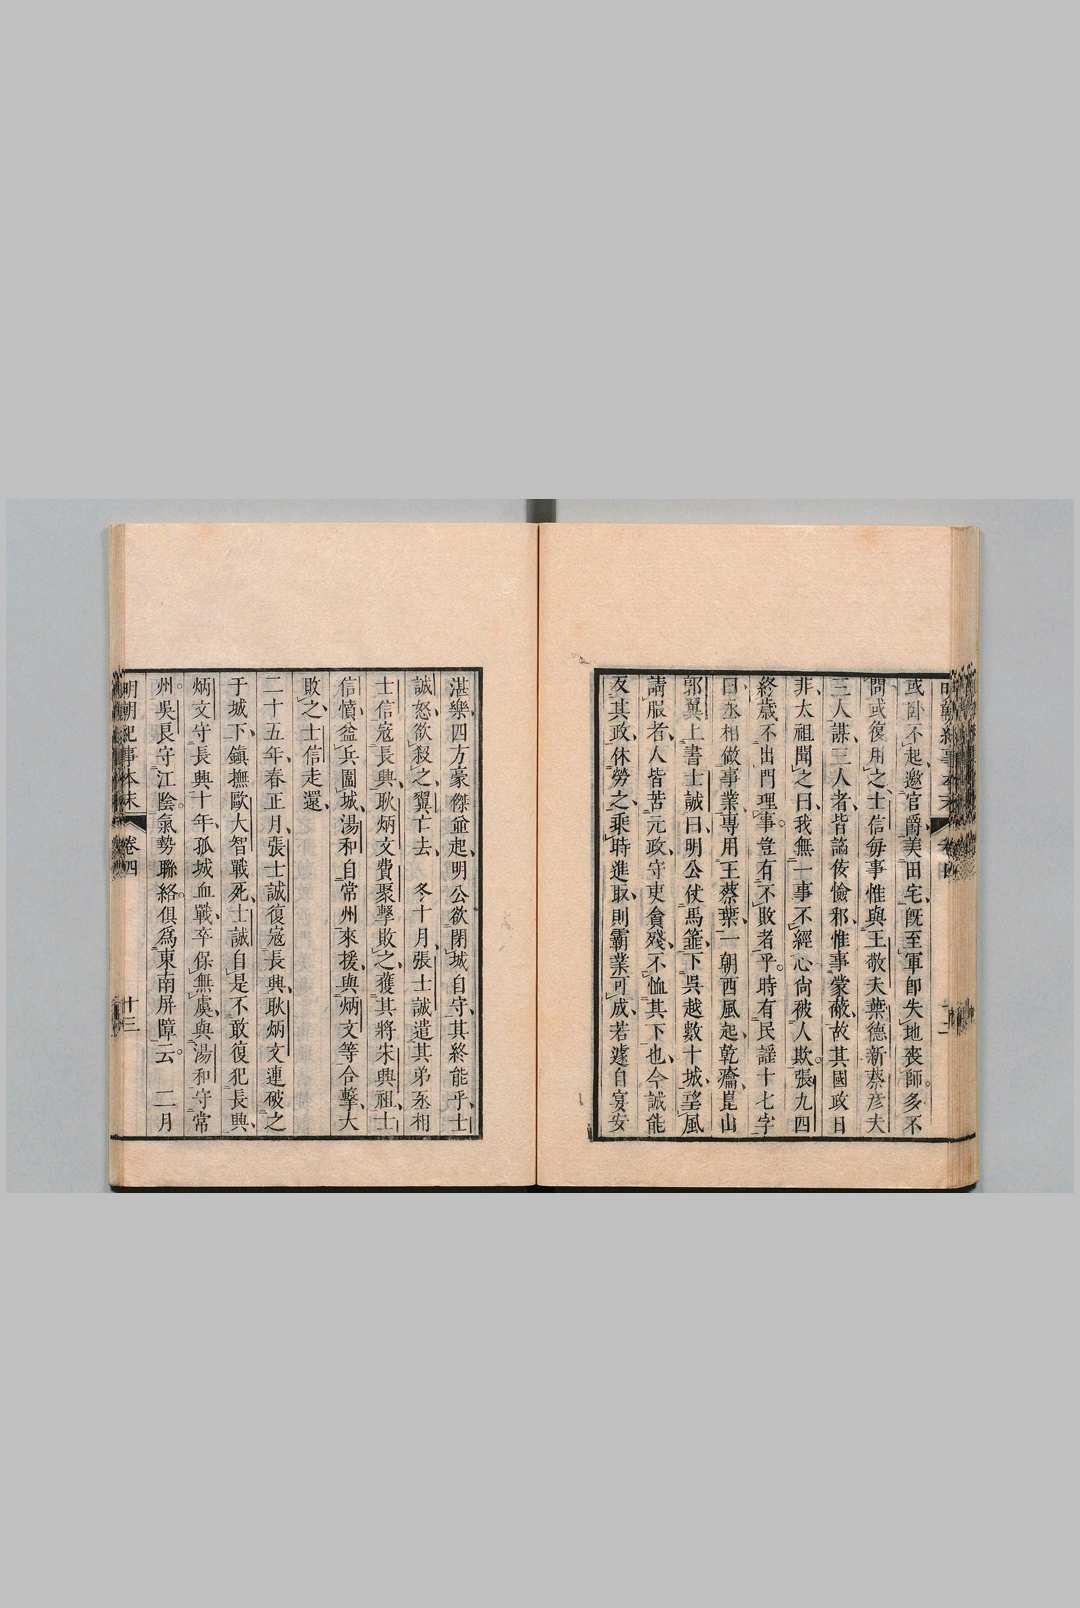 或臥不起邀官爵美田宅既至軍卽失地喪師多不
問或復用之士信每事惟與王敬夫葉德新蔡彦夫
三人謀三人者皆諂佞憸邪惟事蒙蔽故其國政日
非太祖聞之曰我無一事不經心尙被人欺張九四
終歲不出門理事豈有不敗者乎時有民謡十七字
曰丞相做事業專用王蔡葉一朝西風起乾癟崑山
郭翼上書士誠曰明公仗馬箠下吳越數十城望風
請服者人皆苦元政守吏貪殘不恤其下也今誠能
反其政休勞之乘時進取則霸業可成若遽自宴安
湛樂四方豪傑並起明公欲閉城自守其終能乎士
誠怒欲殺之翼亡去 冬十月張士誠遣其弟丞相
士信寇長興耿炳文費聚擊敗之獲其將宋興祖士
信憤益兵圍城湯和自常州來援與炳文等合擊大
敗之士信走還
二十五年春正月張士誠復寇長興耿炳文連破之
于城下鎭撫歐大智戰死士誠自是不敢復犯長興
炳文守長興十年孤城血戰卒保無虞與湯和守常
州吳良守江陰氣勢聯絡俱爲東南屛障云 二月
明朝紀事本末 卷四 十三